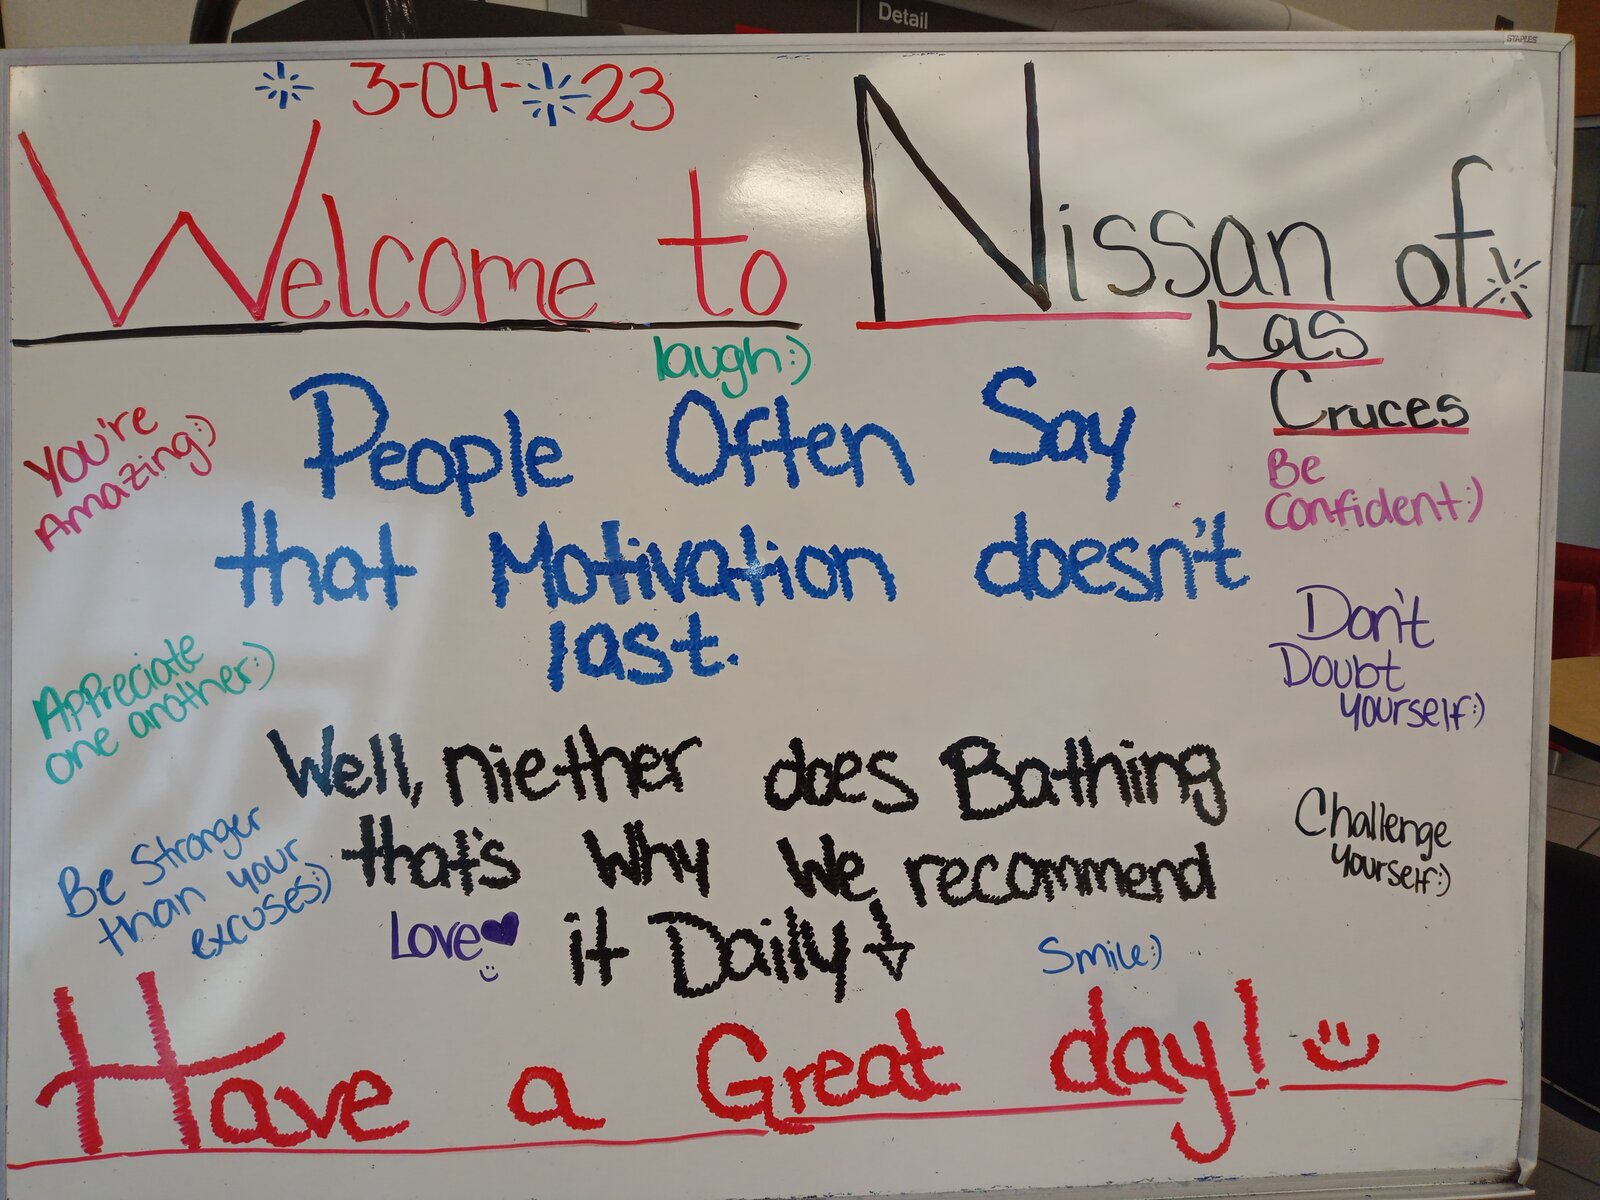 Detail
STAPLES
3-04-23
Welcome to Nissan of
Las
Cruces
laugh:)
You're
Amazing:)
People Often Say
that Motivation doesn't
last.
Be
Confident:)
Don't
Doubt
yourself:)
Appreciate
one another:)
Well, niether does Bathing
that's Why We recommend
it Daily
Challenge
yourself:)
Be Stronger
than your
excuses:)
Love
Smile:)
Have a Great day!